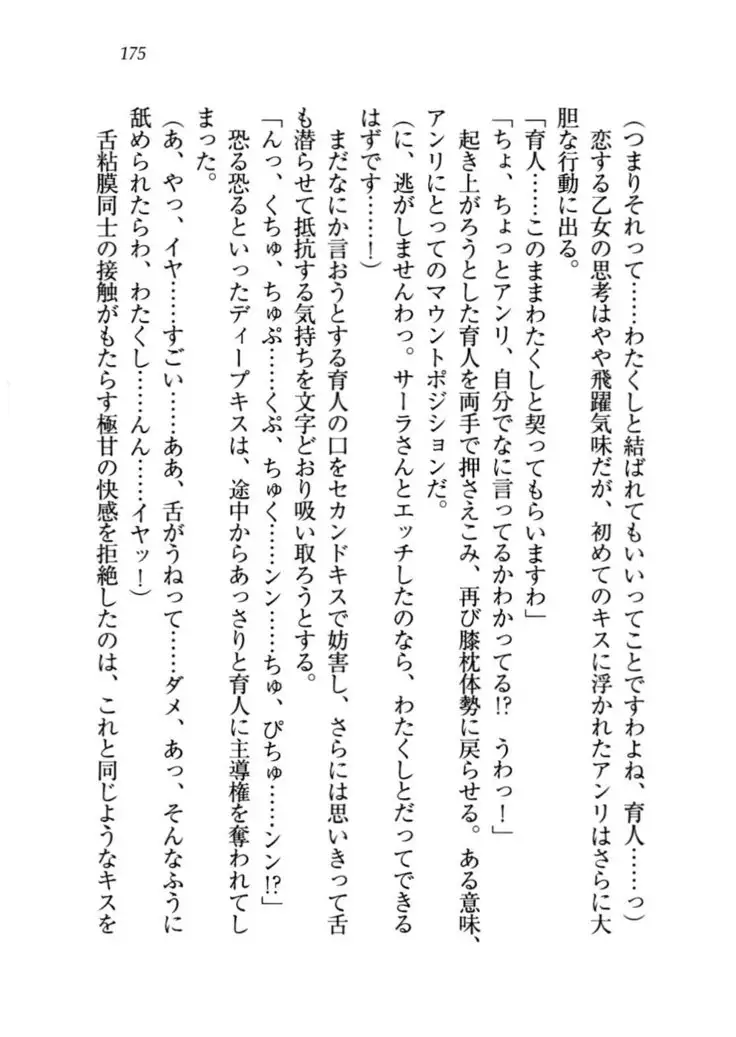 175
(つまりそれって……わたくしと結ばれてもいいってことですわよね、育人……っ)
恋する乙女の思考はやや飛躍気味だが、初めてのキスに浮かれたアンリはさらに大
胆な行動に出る。
「育人……このままわたくしと契ってもらいますわ」
「ちょ、ちょっとアンリ、自分でなに言ってるかわかってる!? うわっ!」
起き上がろうとした育人を両手で押さえこみ、再び膝枕体勢に戻らせる。ある意味、
アンリにとってのマウントポジションだ。
(に、逃がしませんわっ。サーラさんとエッチしたのなら、わたくしとだってできる
はずです……!)
まだなにか言おうとする育人の口をセカンドキスで妨害し、さらには思いきって舌
も潜らせて抵抗する気持ちを文字どおり吸い取ろうとする。
「んっ、くちゅ、ちゅぷ……くぷ、ちゅく……ンン……ちゅ、ぴちゅ……ンン!?」
恐る恐るといったディープキスは、途中からあっさりと育人に主導権を奪われてし
まった。
(あ、やっ、イヤ……すごい……ああ、舌がうねって……ダメ、あっ、そんなふうに
舐められたらわ、わたくし……んん……イヤッ!)
舌粘膜同士の接触がもたらす極甘の快感を拒絶したのは、これと同じようなキスを